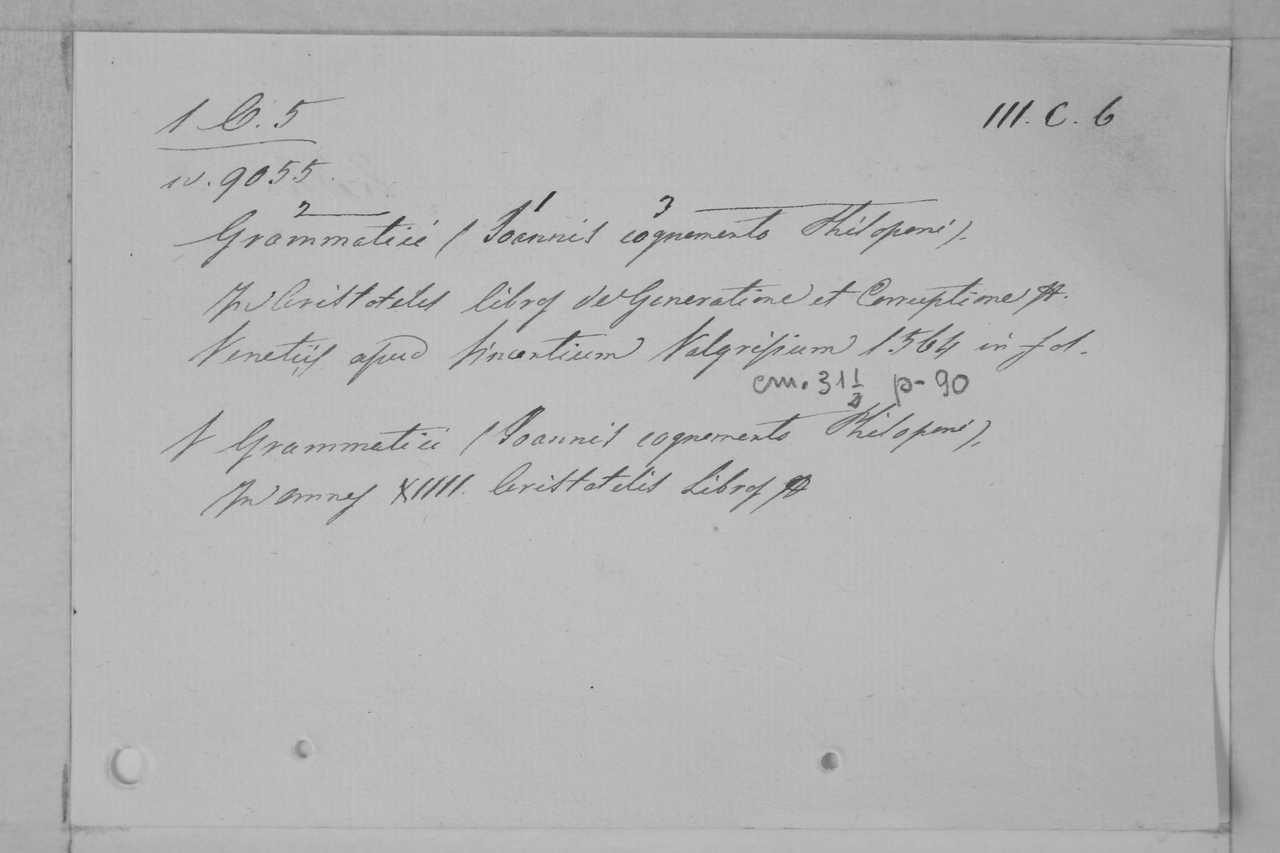 1 C. 5
III. C. 6
iv. 9055.
2 1 3
Grammatici (Joannis cognomento Philoponi).
In Aristotelis libros de Generatione et Corruptione
Venetiis apud Vincentium Valgrisium 1564 in fol.
cm. 31 1/2 p- 90
Grammatici (Joannis cognomento Philoponi),
In omnes XIIII. Aristotelis Libros